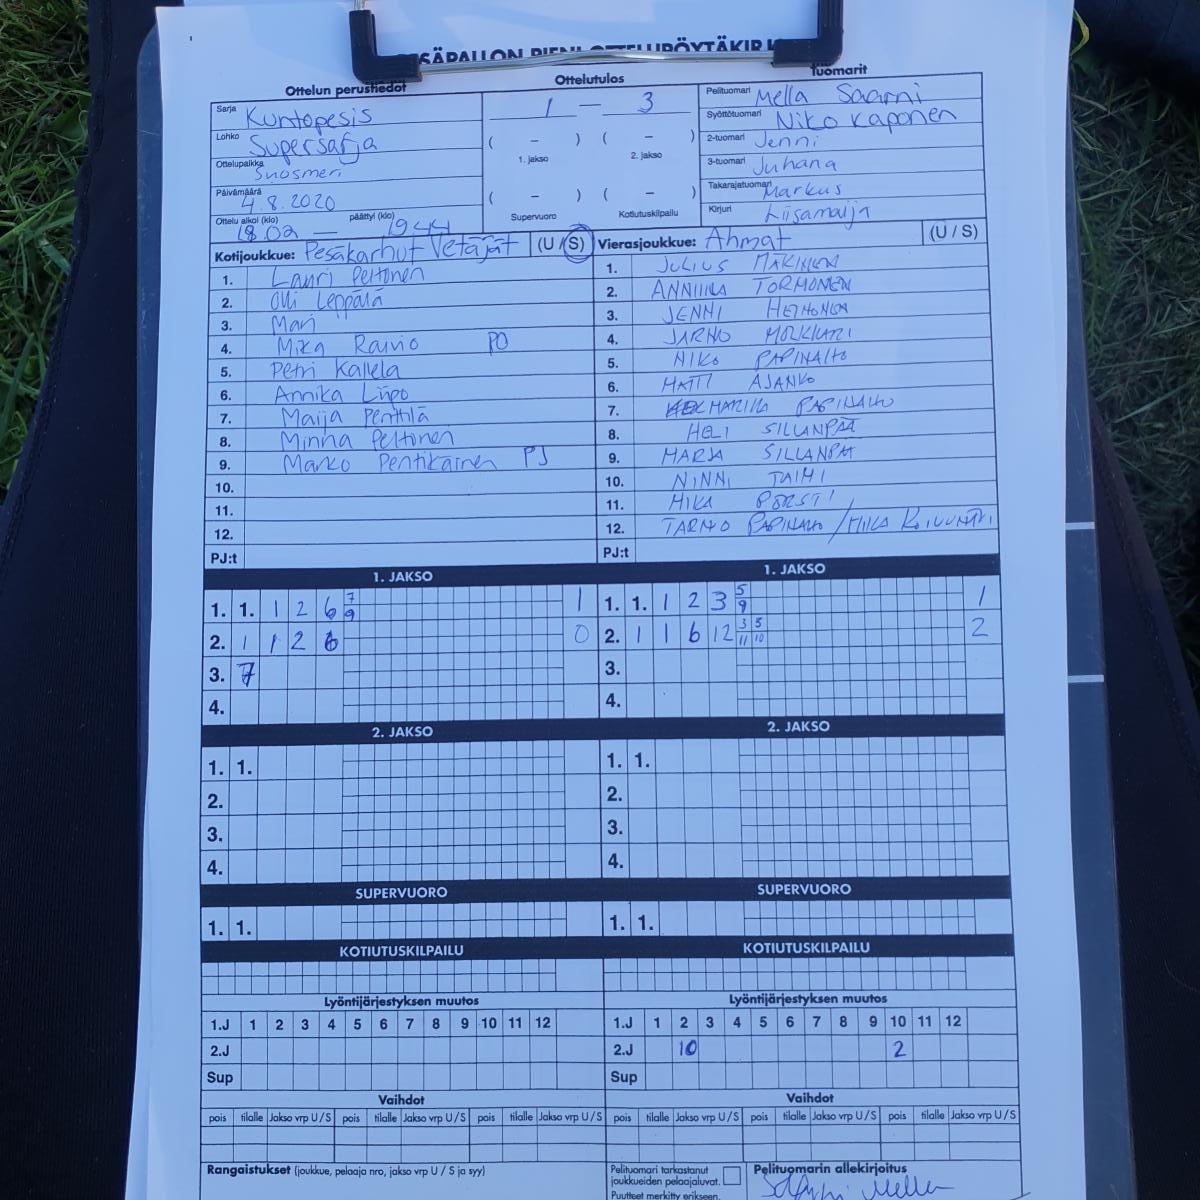 Ottelun perustiedot
Ottelutulos
Tuomarit
Sarja Kuntopesis
Lohko Supersarja
Ottelupaikka Suosmeri
Päivämäärä 4.8.2020
Ottelu alkoi (klo) 18.02 — päättyi (klo) 1944
1 — 3
( – ) ( – )
1. jakso 2. jakso
( – ) ( – )
Supervuoro Kotiutuskilpailu
Pelituomari Mella Saarni
Syöttötuomari Niko Kaponen
2-tuomari Jenni
3-tuomari Juhana
Takarajatuomari Markus
Kirjuri Liisamaija
Kotijoukkue: Pesäkarhut Vetäjät (U/S)
1. Lauri Peltonen
2. Olli Leppälä
3. Mari
4. Mika Raivio PO
5. Petri Kallela
6. Annika Liipo
7. Maija Penttilä
8. Minna Peltonen
9. Marko Pentikäinen PJ
10.
11.
12.
PJ:t
Vierasjoukkue: Ahmat (U/S)
1. JULIUS MÄKINEN
2. ANNIIKA TORMONEN
3. JENNI
4. JARNO
5. NIKO PAPINAHO
6. MATTI AJANKO
7. MARIKA PAPINAHO
8. HELI SILLANPÄÄ
9. MARJA SILLANPÄÄ
10. NINNI TAIMI
11. MIKA PORSTI
12. TARMO PAPINAHO / MIIKA
PJ:t
1. JAKSO
1. 1. 1 2 6 7 9 1
2. 1 1 2 6 0
3. 7
4.
1. JAKSO
1. 1. 1 2 3 5 9 1
2. 1 1 6 12 3 11 5 10 2
3.
4.
2. JAKSO
1. 1.
2.
3.
4.
2. JAKSO
1. 1.
2.
3.
4.
SUPERVUORO
1. 1.
SUPERVUORO
1. 1.
KOTIUTUSKILPAILU
KOTIUTUSKILPAILU
Lyöntijärjestyksen muutos
1.J 1 2 3 4 5 6 7 8 9 10 11 12
2.J
Sup
Lyöntijärjestyksen muutos
1.J 1 2 3 4 5 6 7 8 9 10 11 12
2.J 10 2
Sup
Vaihdot
pois tilalle Jakso vrp U/S pois tilalle Jakso vrp U/S pois tilalle Jakso vrp U/S
Vaihdot
pois tilalle Jakso vrp U/S pois tilalle Jakso vrp U/S pois tilalle Jakso vrp U/S
Rangaistukset (joukkue, pelaaja nro, jakso vrp U / S ja syy)
Pelituomari tarkastanut
joukkueiden pelaajaluvat.
Puutteet merkitty erikseen.
Pelituomarin allekirjoitus